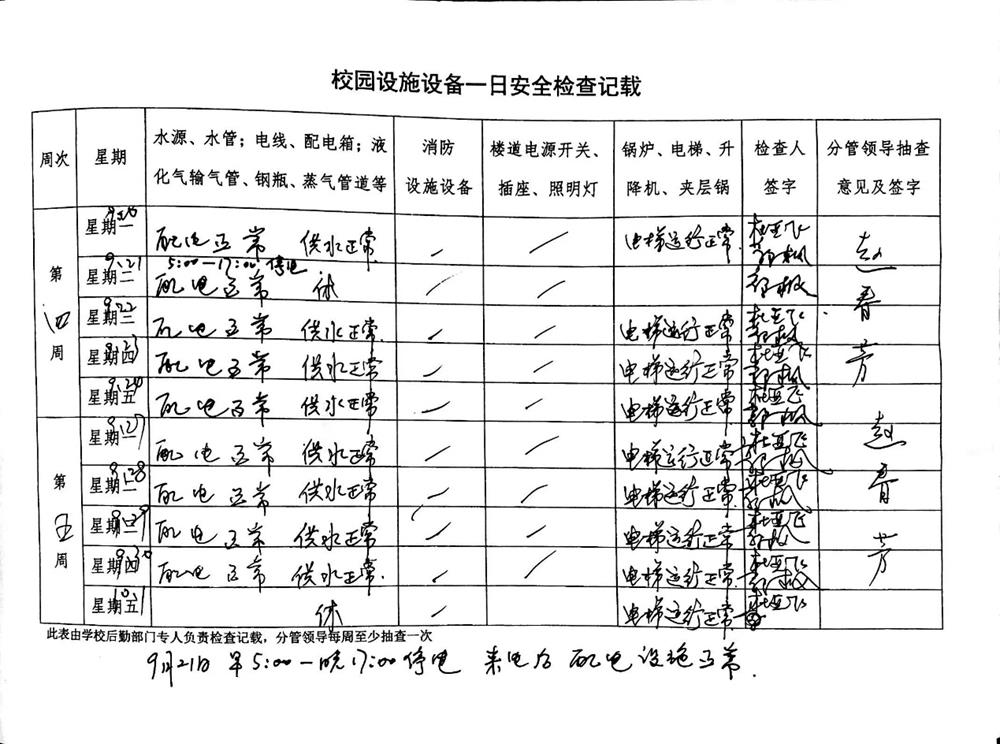 校园设施设备一日安全检查记载
周次 星期 水源、水管；电线、配电箱；液化气输气管、钢瓶、蒸气管道等 消防设施设备 楼道电源开关、插座、照明灯 锅炉、电梯、升降机、夹层锅 检查人签字 分管领导抽查意见及签字
第四周 星期一 9.20 配电正常 供水正常 / / 电梯运行正常 杜亚飞 赵春芳
星期二 9.21 5:00—17:00停电 配电正常 休 / /
星期三 9.22 配电正常 供水正常 / / 电梯运行正常 杜亚飞
星期四 9.23 配电正常 供水正常 / / 电梯运行正常 杜亚飞
星期五 9.24 配电正常 供水正常 / / 电梯运行正常 杜亚飞
第五周 星期一 9.27 配电正常 供水正常 / / 电梯运行正常 杜亚飞 赵春芳
星期二 9.28 配电正常 供水正常 / / 电梯运行正常 杜亚飞
星期三 9.29 配电正常 供水正常 / / 电梯运行正常 杜亚飞
星期四 9.30 配电正常 供水正常 / / 电梯运行正常 杜亚飞
星期五 10.1 休 / 电梯运行正常 杜亚飞
此表由学校后勤部门专人负责检查记载，分管领导每周至少抽查一次
9月21日 早5:00—晚17:00停电 来电后 配电设施正常.